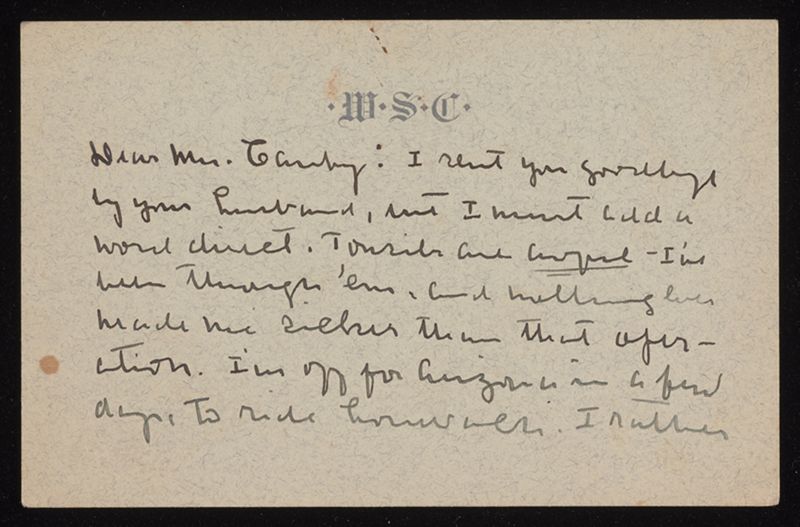 ·W·S·C·
Dear Mrs. Canby: I sent you goodbye
by your husband, but I must add a
word direct. Tonsils are awful – I've
been through 'em, and nothing ever
made me sicker than that oper-
ation. I'm off for Arizona in a few
days, to ride horseback. I rather